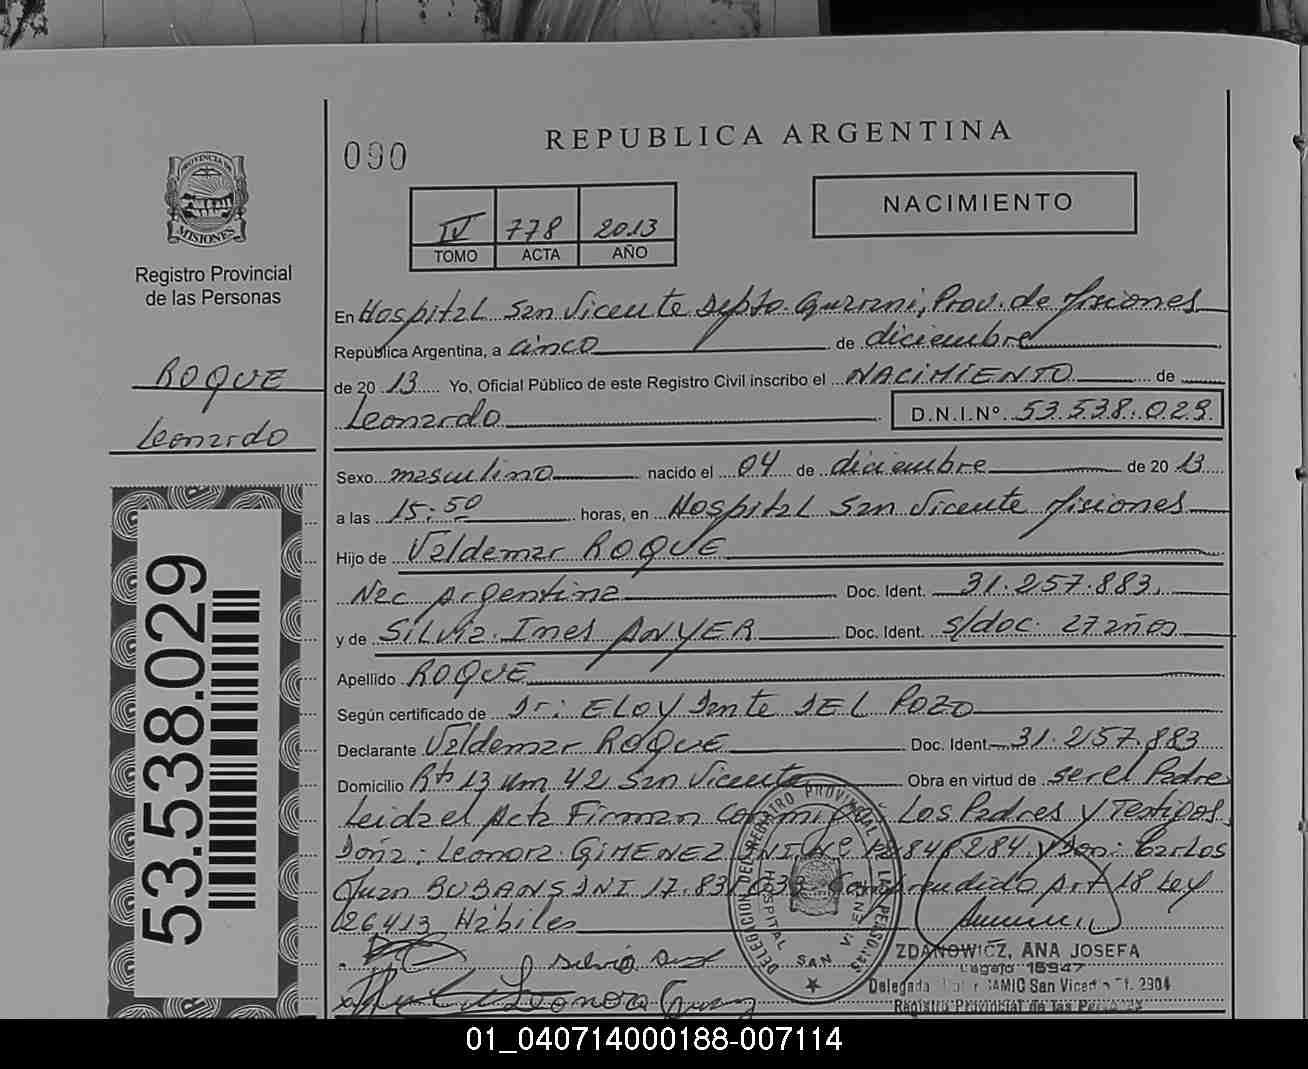 REPUBLICA ARGENTINA
090
NACIMIENTO
IV 778 2013
TOMO ACTA AÑO
PROVINCIA DE
MISIONES
Registro Provincial
de las Personas
ROQUE
Leonardo
53.538.029
En Hospital San Vicente Depto Guarani, Prov. de Misiones
República Argentina, a cinco de diciembre
de 2013 Yo, Oficial Público de este Registro Civil inscribo el NACIMIENTO de
Leonardo D.N.I.Nº 53.538.029
Sexo masculino nacido el 04 de diciembre de 2013
a las 15:50 horas, en Hospital San Vicente Misiones
Hijo de Valdemar ROQUE
Nac Argentina Doc. Ident. 31.257.883
y de Silvia Ines ANYER Doc. Ident. s/doc 27 años
Apellido ROQUE
Según certificado de Dr: ELOY Dante DEL POZO
Declarante Valdemar ROQUE Doc. Ident. 31.257.883
Domicilio Rta 13 Km 42 San Vicente Obra en virtud de ser el Padre
Leida el Acta Firman Los Padres y Testigos
Doña: Leonora GIMENEZ DNI Nº 284 y Don: Carlos
Juan BUBANS DNI Comprendido Art 18 Ley
26413 Hábiles
Silvia
Leonora
DELEGACION DEL REGISTRO PROVINCIAL DE LAS PERSONAS
HOSPITAL SAN VICENTE
ZDANOWICZ, ANA JOSEFA
Legajo 15947
Delegada SAMIC San Vicente 2904
Registro Provincial de las Personas
01_040714000188-007114